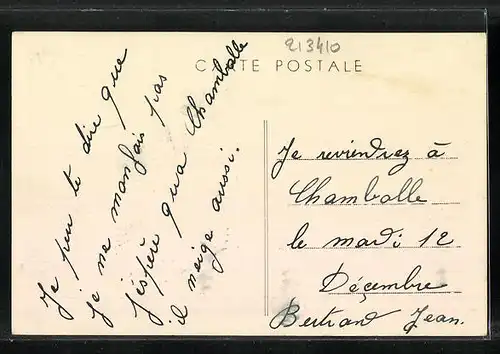 213410
CARTE POSTALE
Je peu te dire que
je me manfais pas
j'espère qua Chambolle
il neige aussi.
Je reviendrez à
Chambolle
le mardi 12
Décembre
Bertrand Jean.